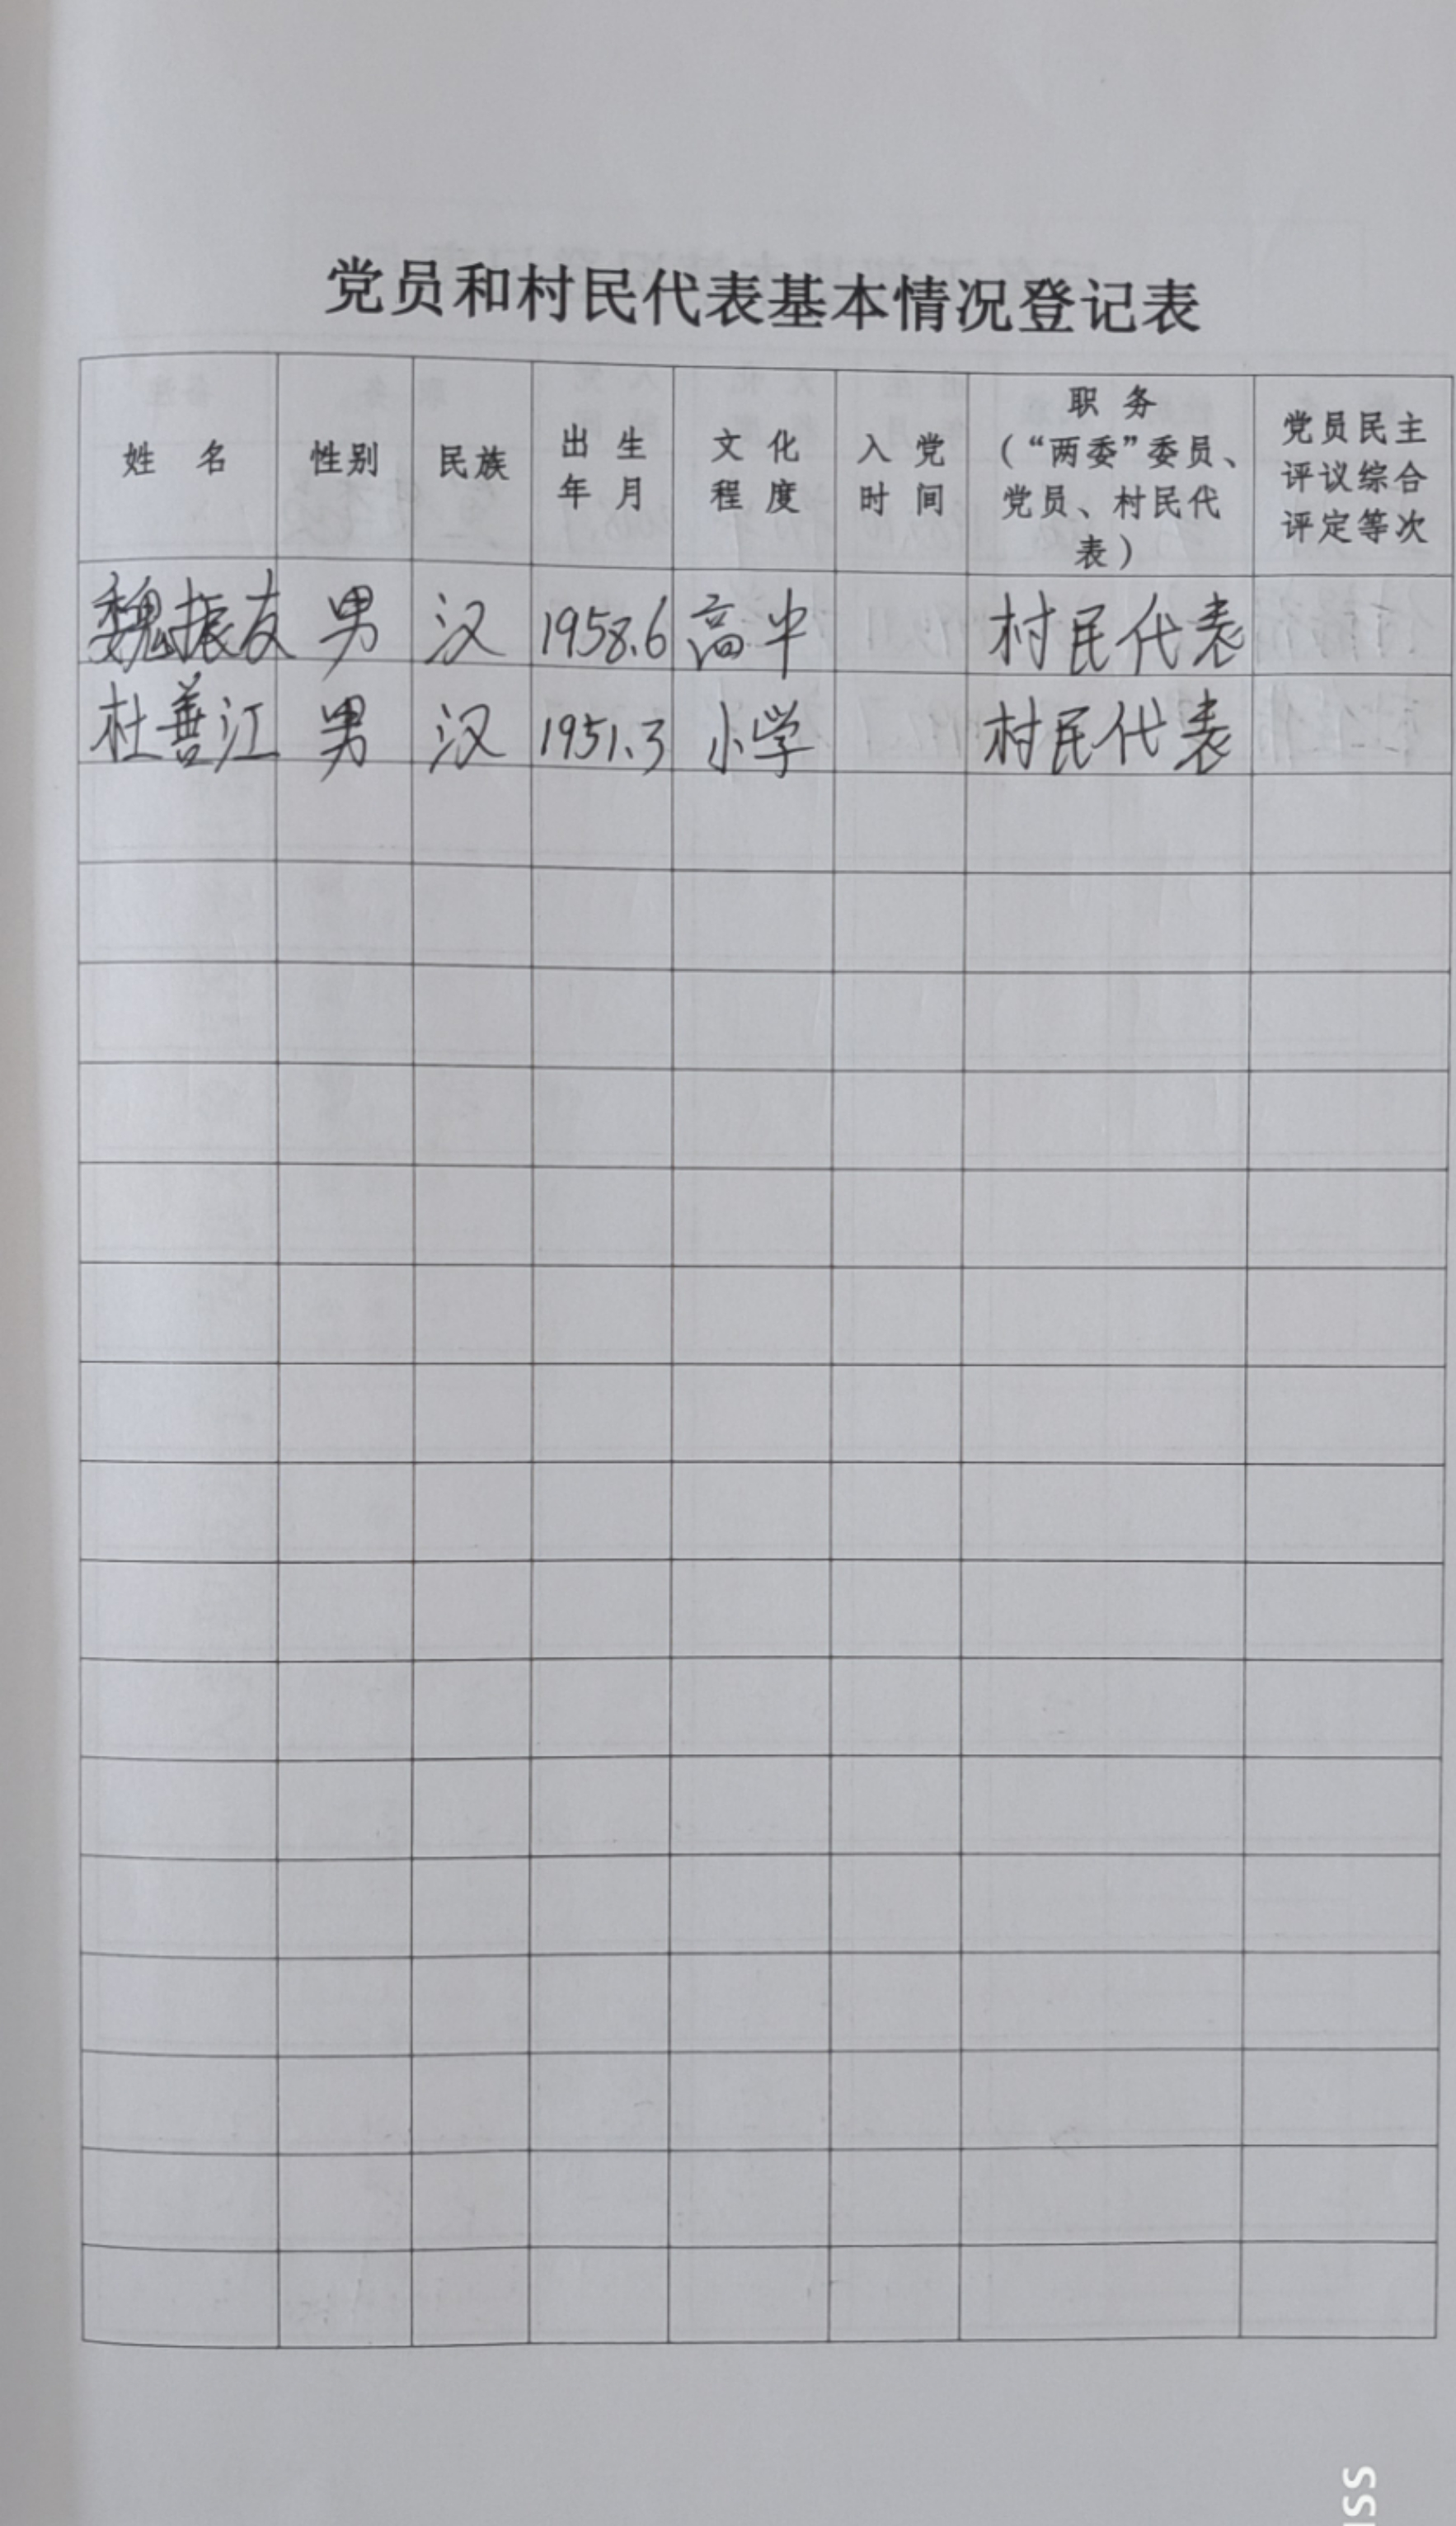 党员和村民代表基本情况登记表
姓 名 性别 民族 出 生 年 月 文 化 程 度 入 党 时 间 职 务 (“两委”委员、党员、村民代表) 党员民主评议综合评定等次
魏振友 男 汉 1958.6 高中 村民代表
杜善江 男 汉 1951.3 小学 村民代表